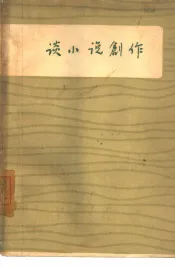 谈小说創作